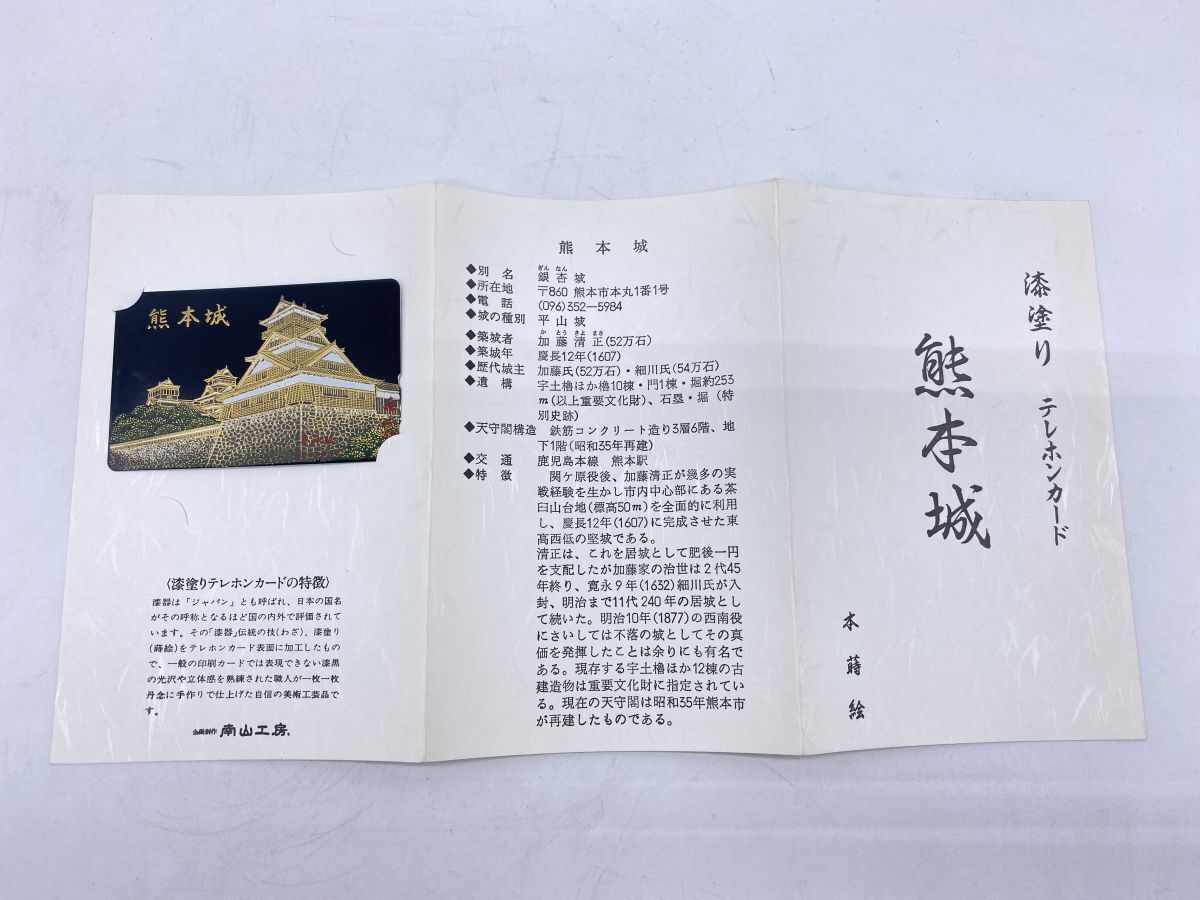 熊本城
〈漆塗りテレホンカードの特徴〉
漆器は「ジャパン」とも呼ばれ、日本の国名
がその呼称となるほど国の内外で評価されて
います。その「漆器」伝統の技(わざ)、漆塗り
(蒔絵)をテレホンカード表面に加工したもの
で、一般の印刷カードでは表現できない漆黒
の光沢や立体感を熟練された職人が一枚一枚
丹念に手作りで仕上げた自信の美術工芸品で
す。
企画製作 南山工房
熊本城
ぎん なん
◆別名 銀杏城
◆所在地 〒860 熊本市本丸1番1号
◆電話 (096)352―5984
◆城の種別 平山城
か とう きよ まさ
◆築城者 加藤清正(52万石)
◆築城年 慶長12年(1607)
◆歴代城主 加藤氏(52万石)・細川氏(54万石)
◆遺構 宇土櫓ほか櫓10棟・門1棟・堀約253
m(以上重要文化財)、石塁・堀(特
別史跡)
◆天守閣構造 鉄筋コンクリート造り3層6階、地
下1階(昭和35年再建)
◆交通 鹿児島本線 熊本駅
◆特徴 関ケ原役後、加藤清正が幾多の実
戦経験を生かし市内中心部にある茶
臼山台地(標高50m)を全面的に利用
し、慶長12年(1607)に完成させた東
高西低の堅城である。
清正は、これを居城として肥後一円
を支配したが加藤家の治世は2代45
年終り、寛永9年(1632)細川氏が入
封、明治まで11代240年の居城とし
て続いた。明治10年(1877)の西南役
にさいしては不落の城としてその真
価を発揮したことは余りにも有名で
ある。現存する宇土櫓ほか12棟の古
建造物は重要文化財に指定されてい
る。現在の天守閣は昭和35年熊本市
が再建したものである。
漆塗り テレホンカード
熊本城
本蒔絵